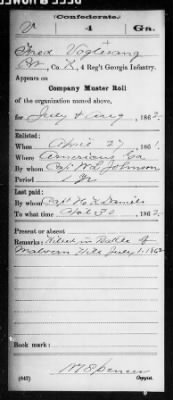 Confederate.
V 4 Ga.
Fred Vogtwang
Co. K, 4 Reg't Georgia Infantry.
Appears on
Company Muster Roll
of the organization named above,
for July & Aug, 1862.
Enlisted:
When April 27, 1861.
Where Americus Ga
By whom Capt. Wm Johnson
Period 1 Yr
Last paid:
By whom Capt
To what time 30, 1862.
Present or absent
Remarks: Killed in Battle of
Malvern Hill July 1, 1862
Book mark:
(642)
M Spencer
Copyist.